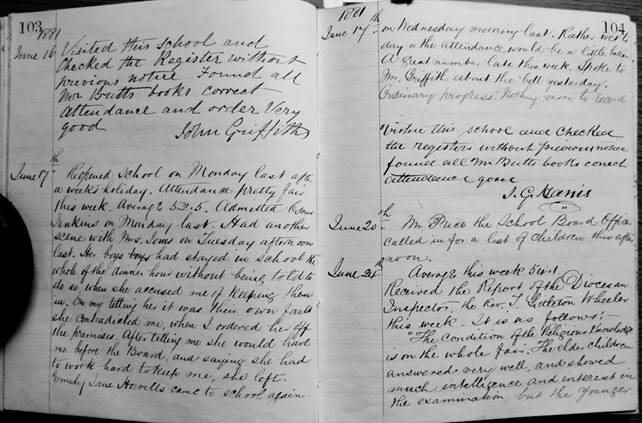 103
1881
June 16
Visited this school and
Checked the Register without
previous notice Found all
Mr Butts books correct
Attendance and order Very
good
John Griffith
June 17th
Reopened School on Monday last after
a week's holiday. Attendance pretty fair
this week. Average 52.5. Admitted
Jenkins on Monday last. Had another
scene with Mrs. Jones on Tuesday afternoon
last. Her boys had stayed in school the
whole of the dinner hour without being told to
do so, when she accused me of keeping them
in. On my telling her it was their own faults
she contradicted me, when I ordered her off
the premises. After telling me she would have
me before the Board, and saying she had
to work hard to keep me, she left.
Emily Jane Howells came to school again
104
1881
June 17th
on Wednesday morning last. Rather wet to
day or the attendance would be a little better.
A great number late this week. Spoke to
Mr. Griffith about the bell yesterday.
Ordinary progress. Nothing more to record
this school and checked
the registers without previous notice
found all Mr Butts books correct
attendance good
June 20th
Mr Price the School Board Officer
called in for a list of children this after
noon.
June 24th
Average this week
Received the Report of the Diocesan
Inspector, the Rev. Wheeler
this week. It is as follows:-
"The condition of the Religious Knowledge
is on the whole fair. The elder children
answered very well, and showed
much intelligence and interest in
the examination, but the younger